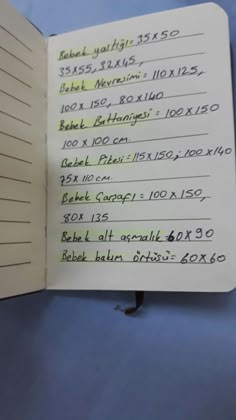 Bebek yastığı: 35x50
35x55, 32x45,
Bebek Nevresimi: 110x125,
100x150, 80x140
Bebek Battaniyesi: 100x150
100x100 cm
Bebek Pikesi: 115x150, 100x140
75x110 cm
Bebek Çarşafı: 100x150,
80x135
Bebek alt açmalık 60x90
Bebek bakım örtüsü: 60x60